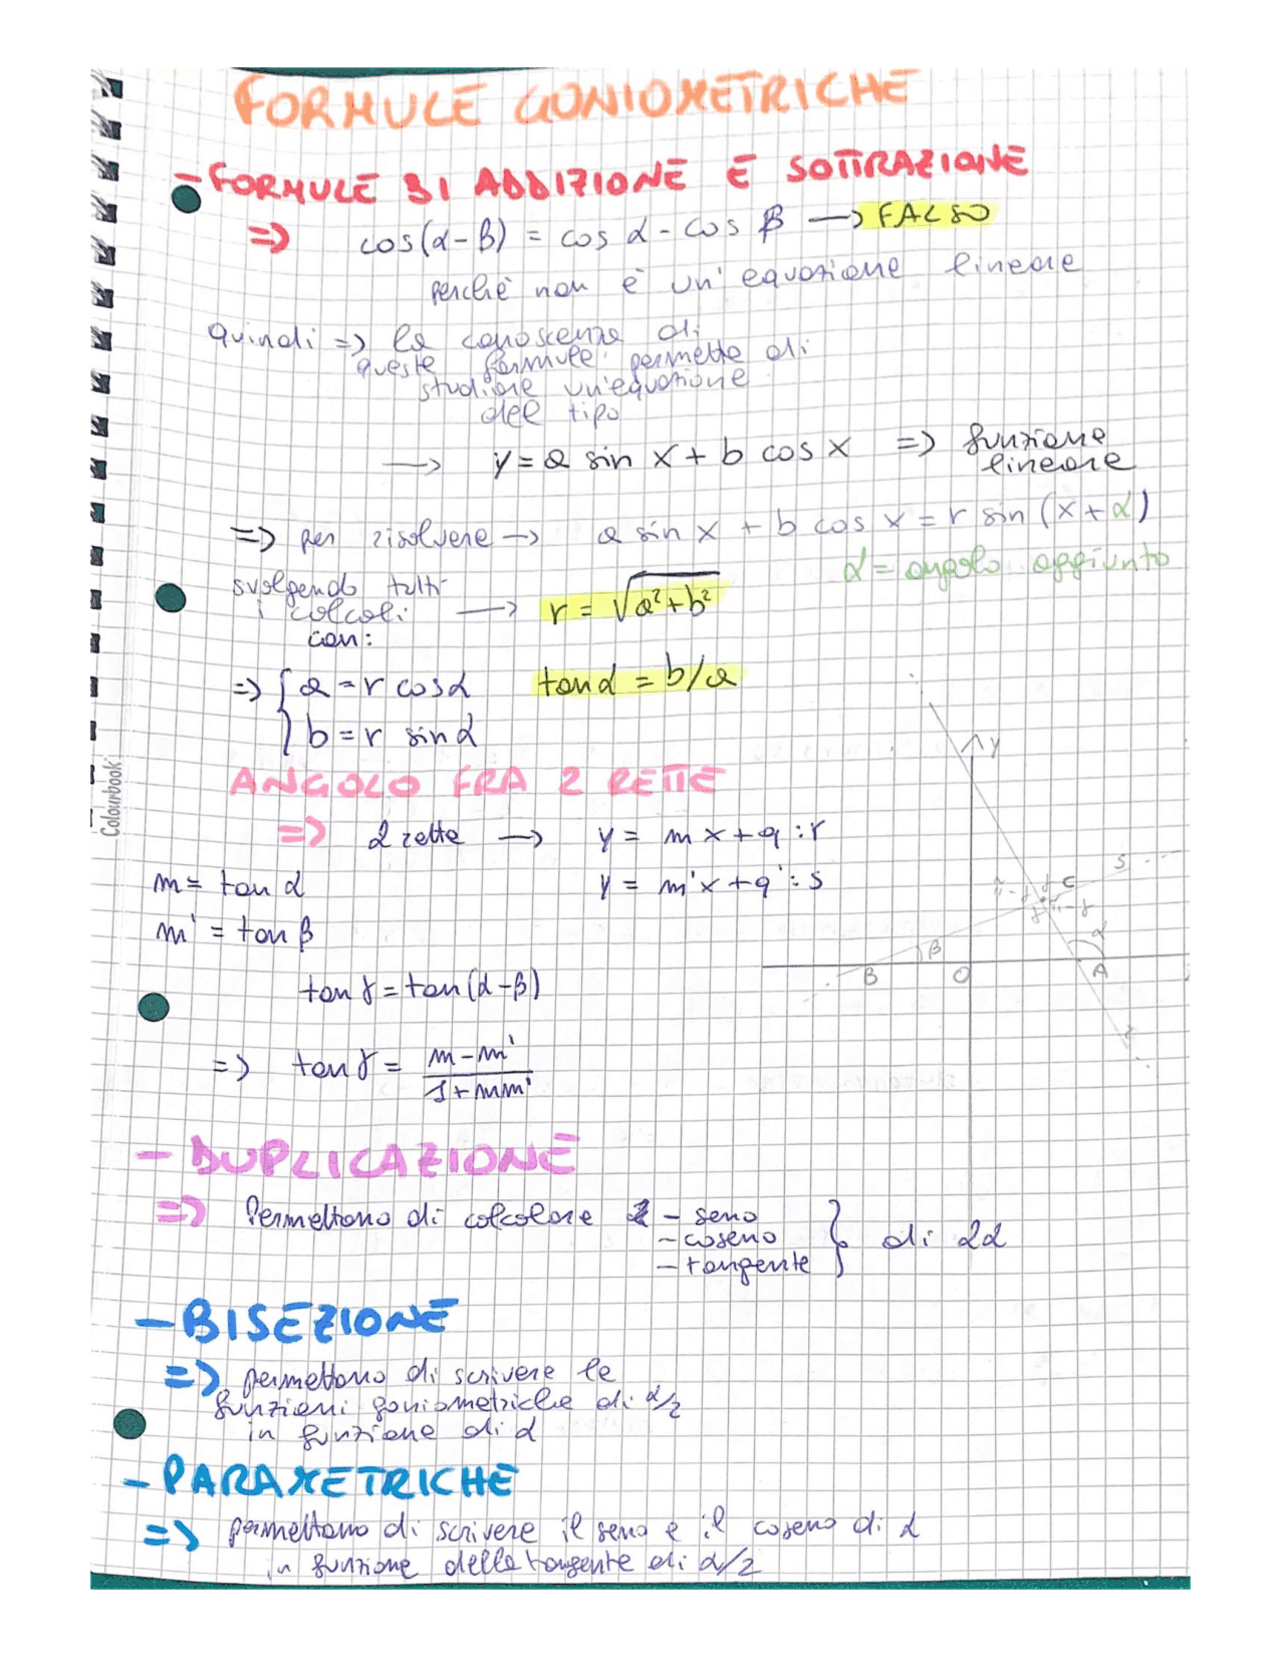 FORMULE GONIOMETRICHE
- FORMULE DI ADDIZIONE E SOTTRAZIONE
=> cos(α-β) = cos α - cos β —> FALSO
perchè non è un'equazione lineare
Quindi => la conoscenza di
queste formule permette di
studiare un'equazione
del tipo
—> y = a sin x + b cos x => funzione
lineare
=> per risolvere —> a sin x + b cos x = r sin (x + α)
α = angolo aggiunto
svolgendo tutti
i calcoli —> r = √a²+b²
con:
=> { a = r cosα tanα = b/a
b = r sinα
ANGOLO FRA 2 RETTE
=> 2 rette —> y = mx + q : r
m = tan α y = m'x + q' : s
m' = tan β
tan γ = tan (α-β)
=> tan γ = m-m'
1+mm'
y
s
π-γ γ C
γ π-γ
α
β
B O A
r
- DUPLICAZIONE
=> Permettono di calcolare - seno
- coseno } di 2α
- tangente
- BISEZIONE
=> permettono di scrivere le
funzioni goniometriche di α/2
in funzione di α
- PARAMETRICHE
=> permettono di scrivere il seno e il coseno di α
in funzione della tangente di α/2
Colourbook